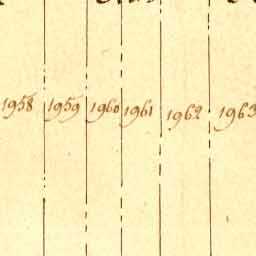 1958 1959 1960 1961 1962 1963